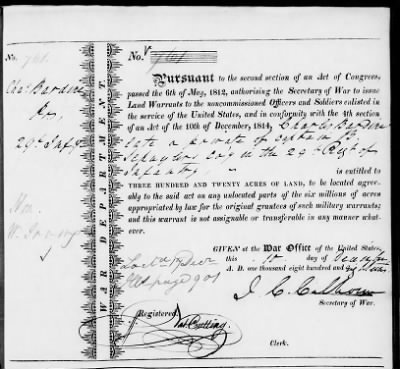 No. 761.
No. 761
PURSUANT to the second section of an Act of Congress,
passed the 6th of May, 1812, authorising the Secretary of War to issue
Land Warrants to the noncommissioned Officers and Soldiers enlisted
in the service of the United States, and in conformity with the 4th section
of an Act of the 10th of December, 1814, Charles
late a private of Captain
in the 29th Regt of
Infantry, is entitled to
THREE HUNDRED AND TWENTY ACRES OF LAND, to be located agreeably
to the said act on any unlocated parts of the six millions of acres
appropriated by law for the original grantees of such military warrants; and
this warrant is not assignable or transferable in any manner what-
ever.
GIVEN at the War Office of the United States,
this day of
A. D. one thousand eight hundred and
J. C. Calhoun
Secretary of War.
Registered
Cutting.
Clerk.
Pvt.
29th Inf.
Hon.
WAR DEPARTMENT
page 901